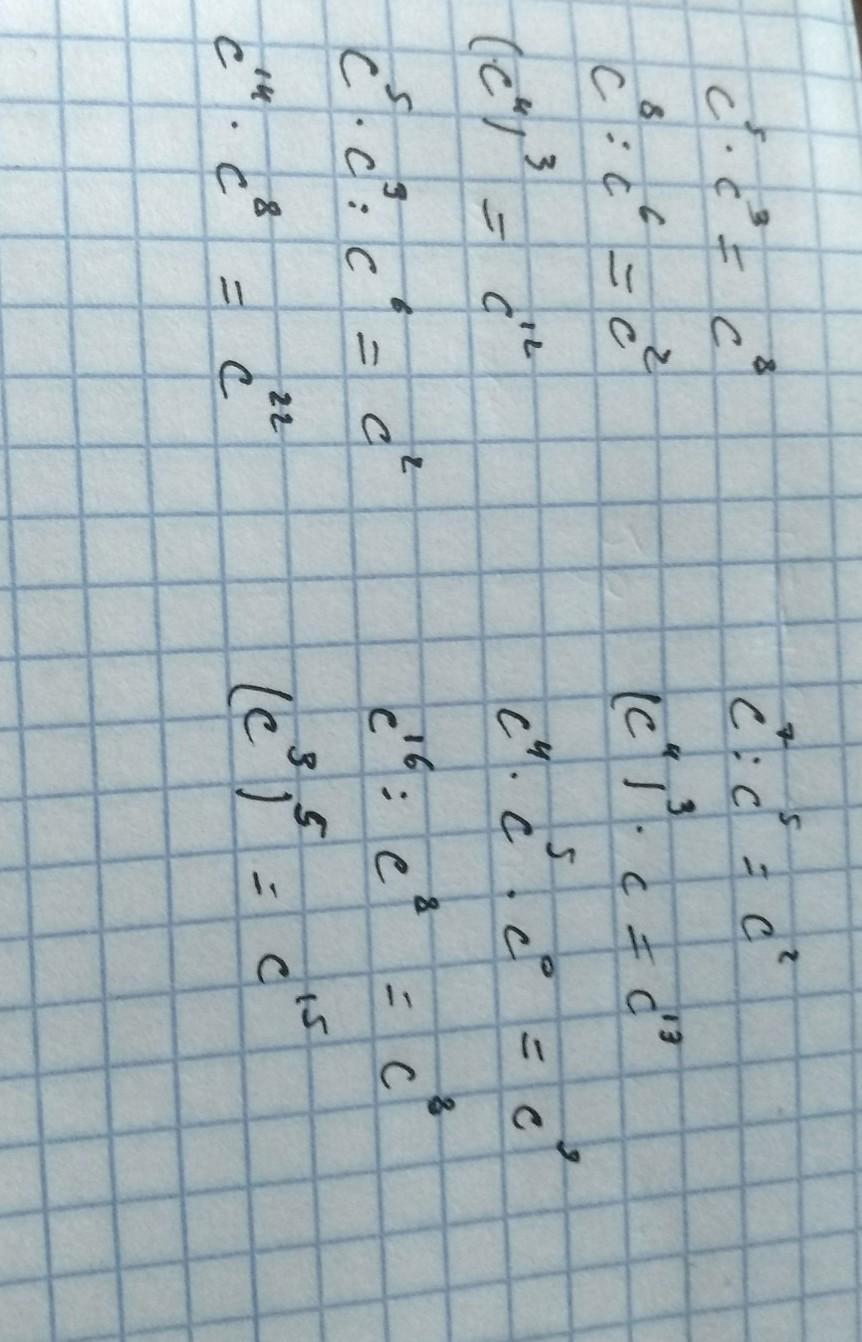 c⁵ · c³ = c⁸
c⁸ : c⁶ = c²
(c⁴)³ = c¹²
c⁵ · c³ : c⁶ = c²
c¹⁴ · c⁸ = c²²
c⁷ : c⁵ = c²
(c⁴)³ · c = c¹³
c⁴ · c⁵ · c⁰ = c⁹
c¹⁶ : c⁸ = c⁸
(c³)⁵ = c¹⁵